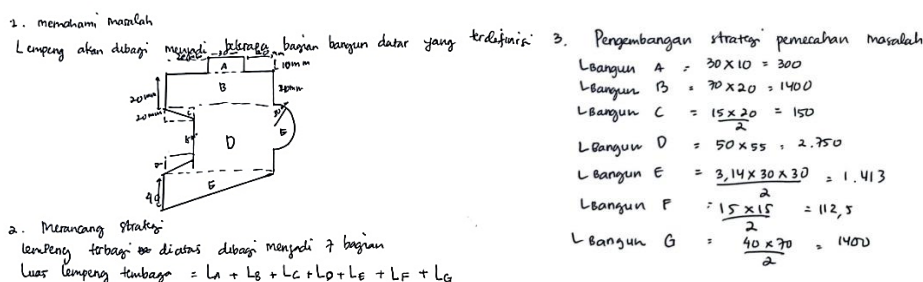 1. memahami masalah
Lempeng akan dibagi menjadi beberapa bagian bangun datar yang terdefinisi
A
10mm
B
20mm
20mm
C
D
E
40
G
2. Merancang strategi
lempeng tembaga diatas dibagi menjadi 7 bagian
Luas lempeng tembaga = LA + LB + LC + LD + LE + LF + LG
3. Pengembangan strategi pemecahan masalah
L Bangun A = 30 x 10 = 300
L Bangun B = 70 x 20 = 1400
L Bangun C = 15 x 20 / 2 = 150
L Bangun D = 50 x 55 = 2.750
L Bangun E = 3,14 x 30 x 30 / 2 = 1.413
L Bangun F = 15 x 15 / 2 = 112,5
L Bangun G = 40 x 70 / 2 = 1400